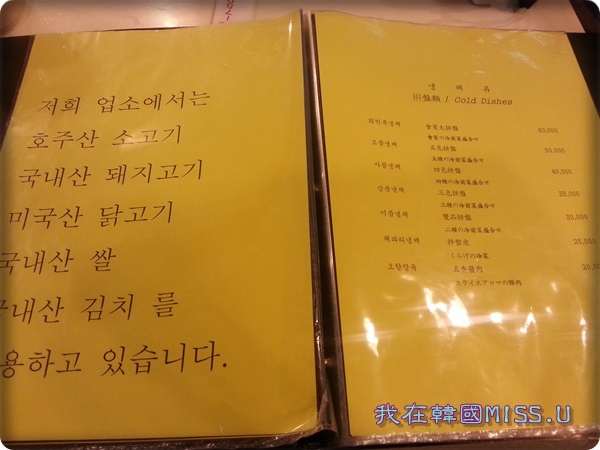 저희 업소에서는
호주산 소고기
국내산 돼지고기
미국산 닭고기
국내산 쌀
국내산 김치 를
용하고 있습니다.
냉 채 류
拼盤類 / Cold Dishes
회빈특냉채 會賓大拼盤 60,000
會賓の冷前菜盛合せ
오품냉채 五色拼盤 50,000
五種の冷前菜盛合せ
사품냉채 四色拼盤 40,000
四種の冷前菜盛合せ
삼품냉채 三色拼盤 35,000
三種の冷前菜盛合せ
이품냉채 雙品拼盤 30,000
二種の冷前菜盛合せ
해파리냉채 拌蜇皮 25,000
くらげの冷菜
오향장육 五香醬肉 20,000
スライスアロマの豚肉
我在韓國MISS.U